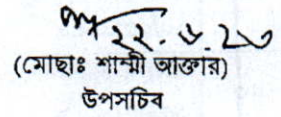 ২২.৬.২৩
(মোছাঃ শাম্মী আক্তার)
উপসচিব